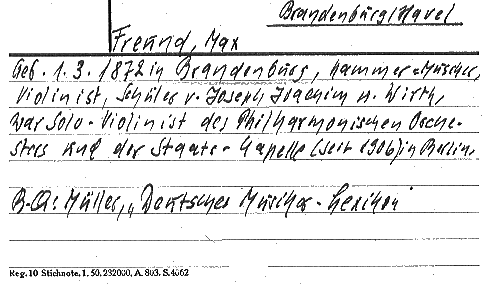 Brandenburg/Havel
Freund, Max
Geb. 1. 3. 1872 in Brandenburg, Kammer-Musiker,
Violinist, Schüler v. Joseph Joachim u. Wirth,
war Solo-Violinist des Philharmonischen Orche-
sters und der Staats-Kapelle (seit 1906) in Berlin.
B.-Q: Müller, „Deutsches Musiker-Lexikon"
Reg. 10 Stichnote. 1. 50. 232000, A. 803. S. 4062